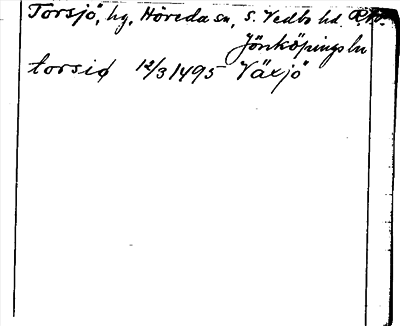 Torsjö, hg, Höreda sn, S. Vedbo hd.
Jönköpings ln
torsiø 12/3 1495 Växjö